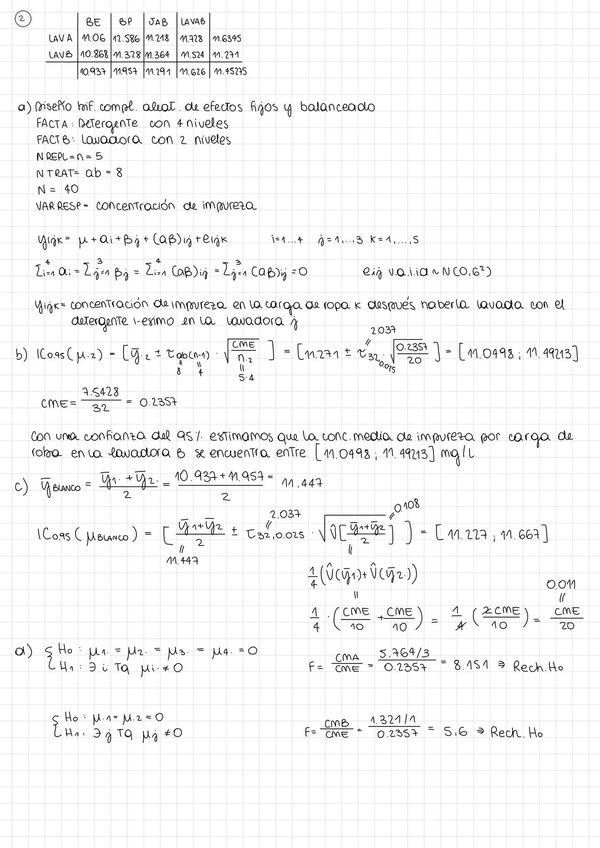 2
BE BP JAB LAVAB
LAV A 11.06 12.586 11.218 11.728 11.6395
LAV B 10.868 11.328 11.364 11.524 11.271
10.937 11.957 11.291 11.626 11.45275
a) Diseño bif. compl. aleat. de efectos fijos y balanceado
FACTA: Detergente con 4 niveles
FACTB: Lavadora con 2 niveles
N REPL = n = 5
N TRAT = ab = 8
N = 40
VAR RESP = concentración de impureza
yijk = μ + αi + βj + (αβ)ij + eijk i=1...4 j=1,...3 k=1,...,5
Σ⁴i=1 αi = Σ³j=1 βj = Σ⁴i=1 (αβ)ij = Σ³j=1 (αβ)ij = 0 eij v.a.i.id ~ N(0,6²)
yijk = concentración de impureza en la carga de ropa k después haberla lavada con el
detergente i-esimo en la lavadora j
b) IC0.95(μ.2) = [ȳ.2 ± τab(n-1) · √(CME/n.2)] = [11.271 ± τ32,0.025 √(0.2357/20)] = [11.0498 ; 11.49213]
2.037
8 4
5·4
CME = 7.5428/32 = 0.2357
Con una confianza del 95% estimamos que la conc. media de impureza por carga de
roba en la lavadora B se encuentra entre [11.0498 ; 11.49213] mg/L
c) ȳBLANCO = (ȳ1. + ȳ2.)/2 = (10.937 + 11.957)/2 = 11.447
2.037 0.108
IC0.95(μBLANCO) = [(ȳ1 + ȳ2)/2 ± τ32,0.025 · √(V̂[(ȳ1 + ȳ2)/2])] = [11.227 ; 11.667]
11.447
1/4 (V̂(ȳ1.) + V̂(ȳ2.))
0.011
1/4 · (CME/10 + CME/10) = 1/4 (2CME/10) = CME/20
d) { H0 : μ1. = μ2. = μ3. = μ4. = 0
H1 : ∃ i TQ μi. ≠ 0 F = CMA/CME = (5.764/3)/0.2357 = 8.151 ⇒ Rech. H0
{ H0 : μ.1 = μ.2 = 0
H1 : ∃ j TQ μj ≠ 0 F = CMB/CME = (1.321/1)/0.2357 = 5.6 ⇒ Rech. H0